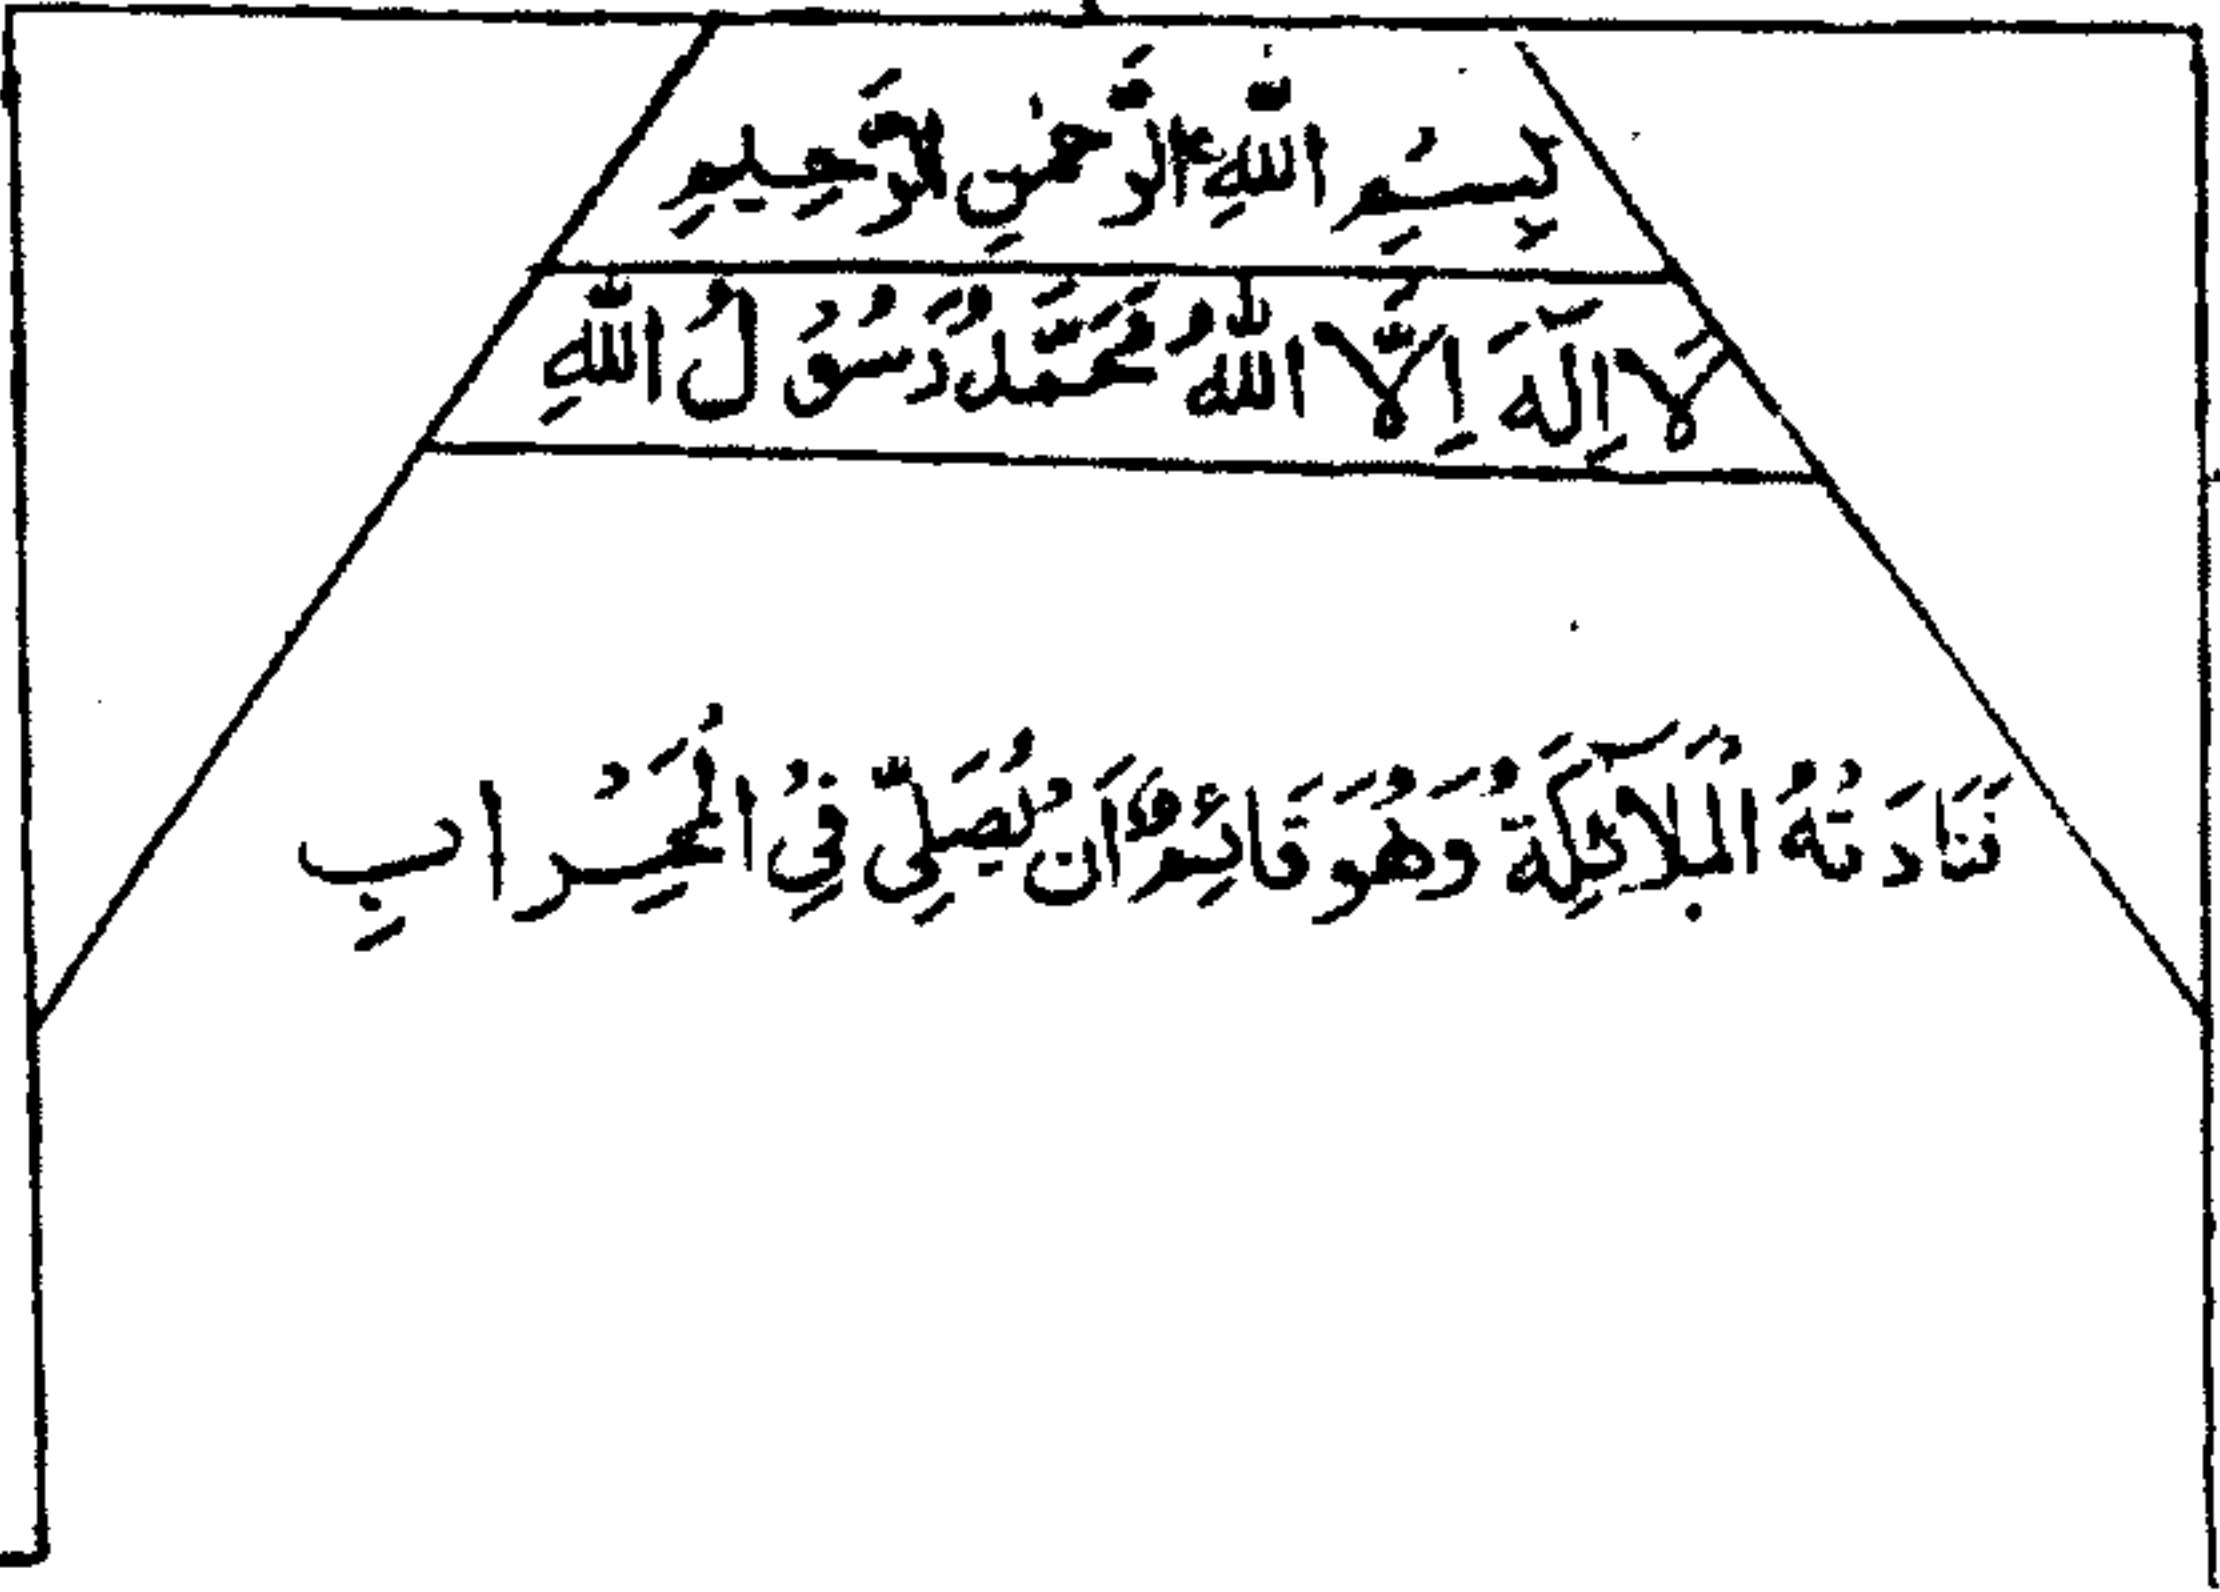 بِسْمِ اللّٰهِ الرَّحْمٰنِ الرَّحِيْمِ
لَآ اِلٰهَ اِلَّا اللّٰهُ مُحَمَّدٌ رَّسُوْلُ اللّٰهِ
فَنَادَتْهُ الْمَلَآئِكَةُ وَهُوَ قَائِمٌ وَاَنْ يُصَلِّيْ فِي الْمِحْرَابِ